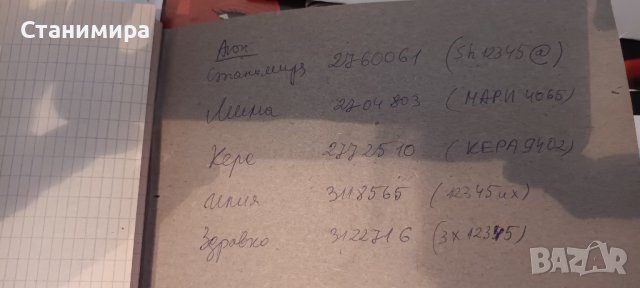 Станимира
Avon
Станимира 2760061 (Sh12345@)
Лина 2704803 (МАРИ 4065)
Кера 2772510 (КЕРА9402)
Илия 3118565 (12345их)
Здравко 3122716 (зх12345)
BAZAR